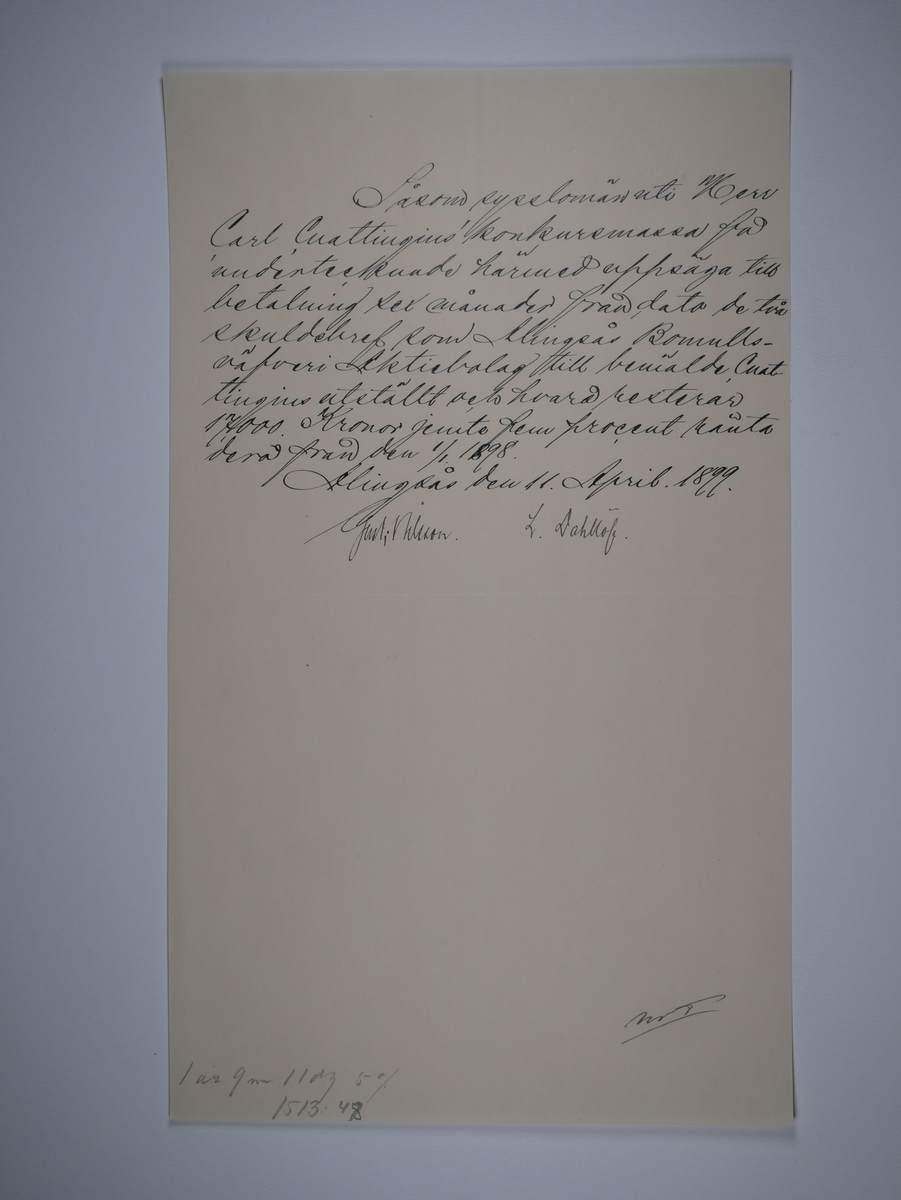 Såsom sysslomän uti Herr
Carl Cnattingius' konkursmassa få
undertecknade härmed uppsäga till
betalning sex månader från dato de två
skuldebref som Alingsås Bomulls-
väfveri Aktiebolag till bemälde Cnat-
tingius utställt och hvará resterar
17000. Kronor jemte fem procent ränta
derå från den 1/1. 1898.
Alingsås den 11. April. 1899.
Gust. Nilsson. L. Dahllöf.
1 år 9 m 11 dg 5 %
1513: 48